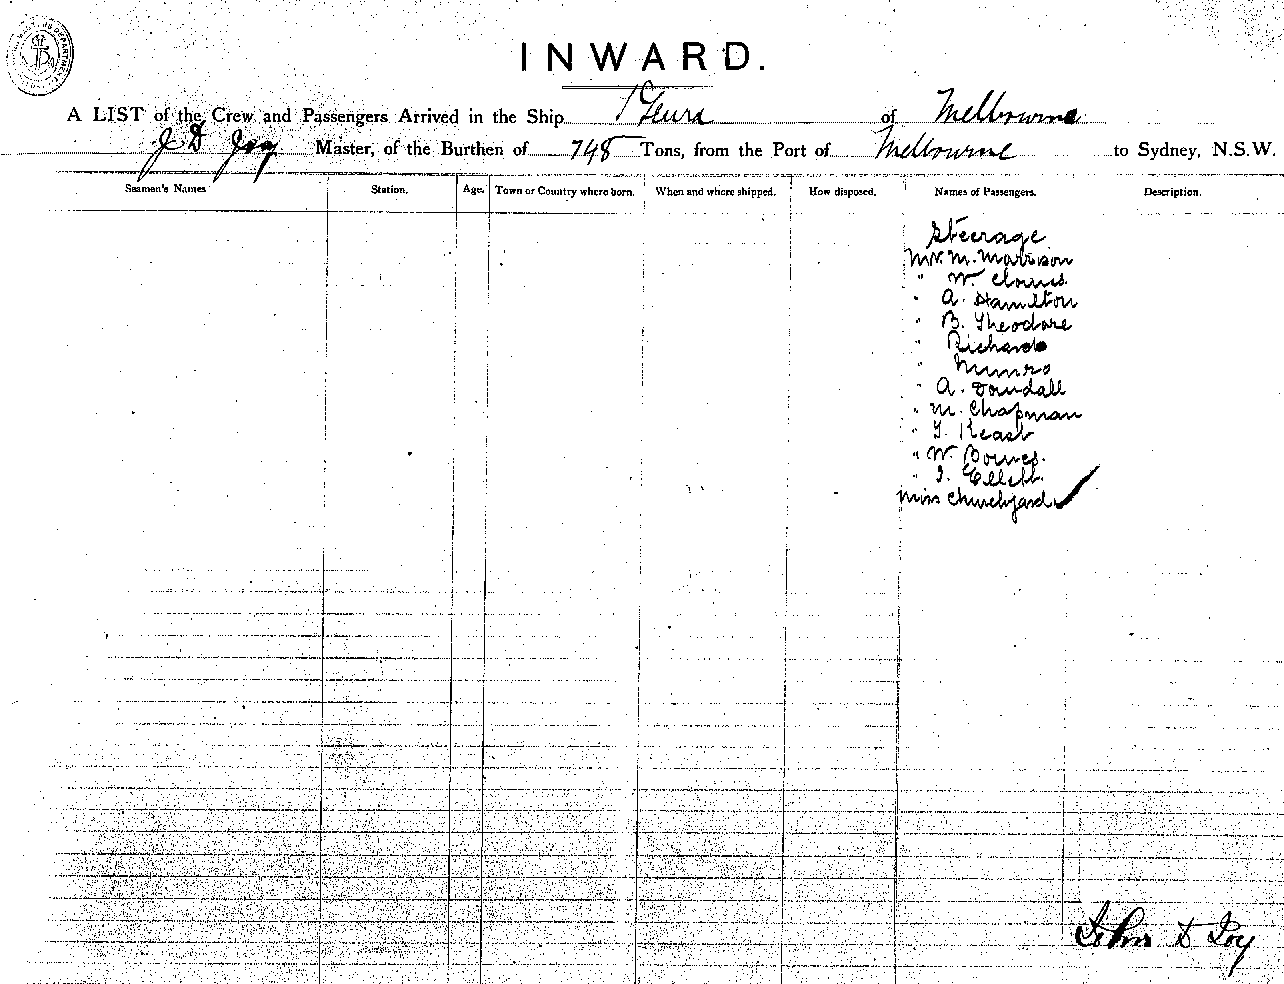 INWARD.
A LIST of the Crew and Passengers Arrived in the Ship of Melbourne
J D Joy Master, of the Burthen of 748 Tons, from the Port of Melbourne to Sydney, N.S.W.
Seamen's Names Station. Age. Town or Country where born. When and where shipped. How disposed. Names of Passengers. Description.
Steerage
Mr. M. Morrison
" W.
" A. Hamilton
" B. Theodore
" Richards
" Munro
" A.
" M. Chapman
" Keast
" W
"
Miss Churchyard
John D Joy